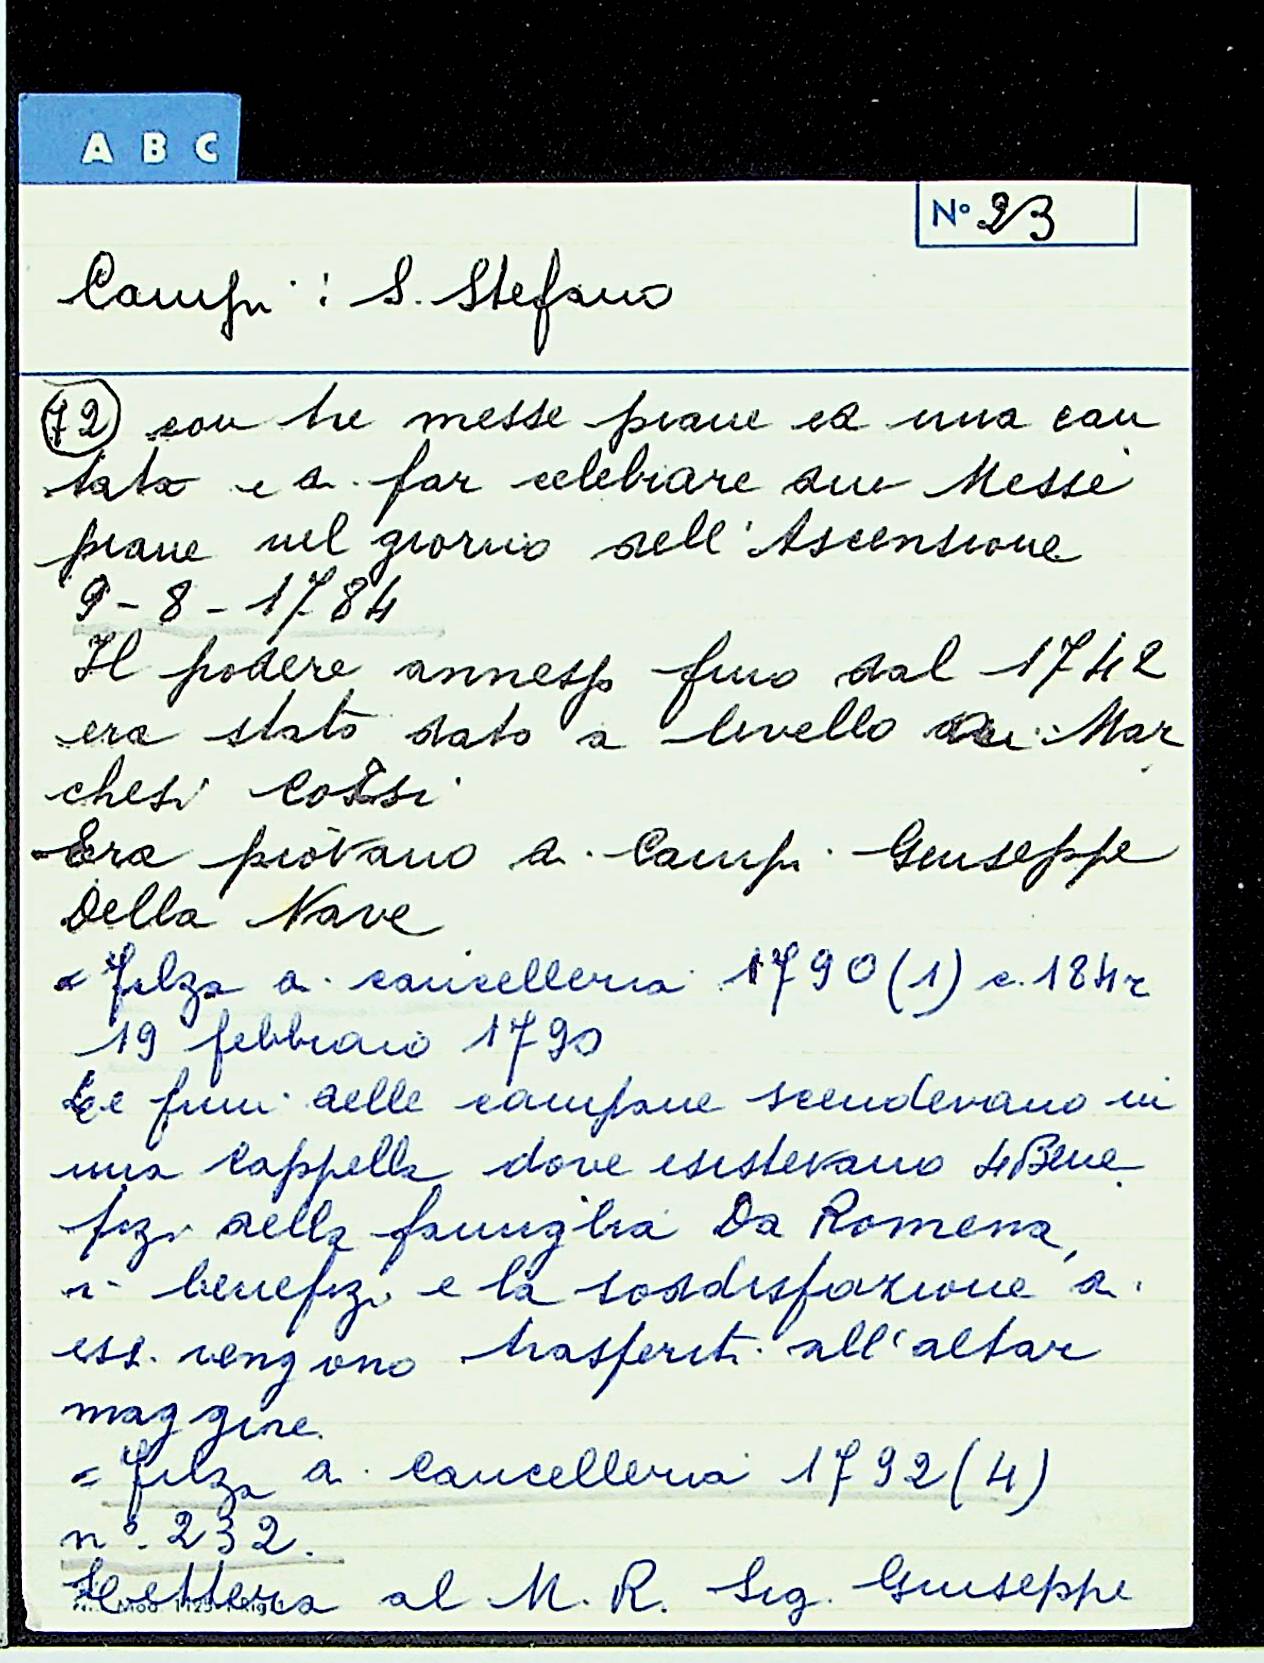 A B C
N° 23
Campi: S. Stefano
72 con tre messe piane ed una can
tata e di far celebrare due Messe
piane nel giorno dell'Ascensione
9-8-1784
Il podere annesso fino dal 1742
era stato dato a livello ai Mar
chesi Corsi
Era piovano di Campi Giuseppe
Della Nave
= Filza di cancelleria 1790 (1) c. 184r
19 febbraio 1790
Le funi delle campane scendevano in
una Cappella dove esistevano 4 Bene
fizi della famiglia Da Romena,
i benefizi e la soddisfazione di
essi vengono trasferiti all'altar
maggire.
= Filza di Cancelleria 1792 (4)
n°. 232.
Lettera al M. R. Sig. Giuseppe